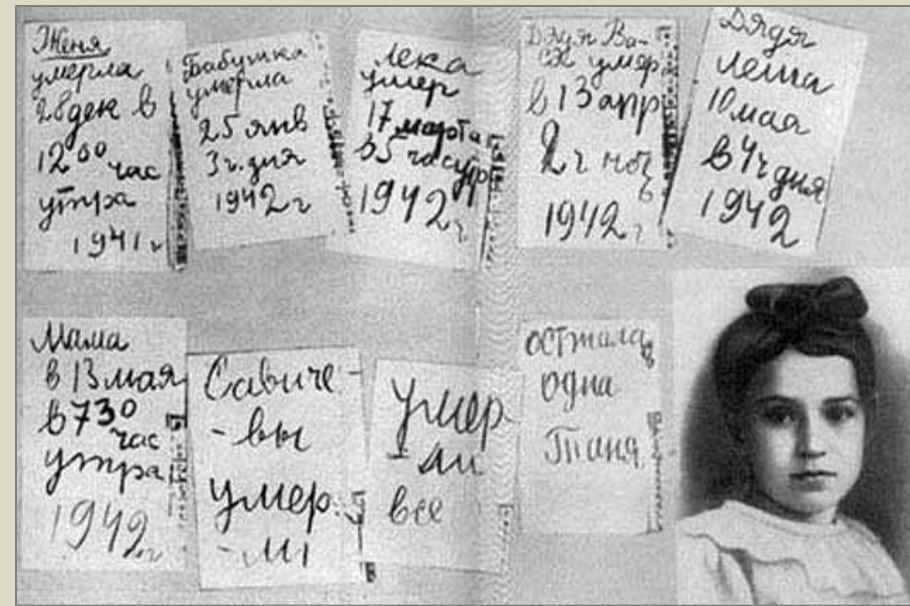 Женя
умерла
28 дек в
12 00 час
утра
1941 г
Бабушка
умерла
25 янв
3 ч. дня
1942 г
Лека
умер
17 марта
в 5 час утр
1942 г
Дядя Ва-
ся умер
в 13 апр
2 ч ноч
1942 г
Дядя
Леша
10 мая
в 4 ч дня
1942
Мама
в 13 мая
в 7 30
час
утра
1942 г
Савиче-
-вы
умер.
-ли
Умер
-ли
все
осталась
одна
Таня